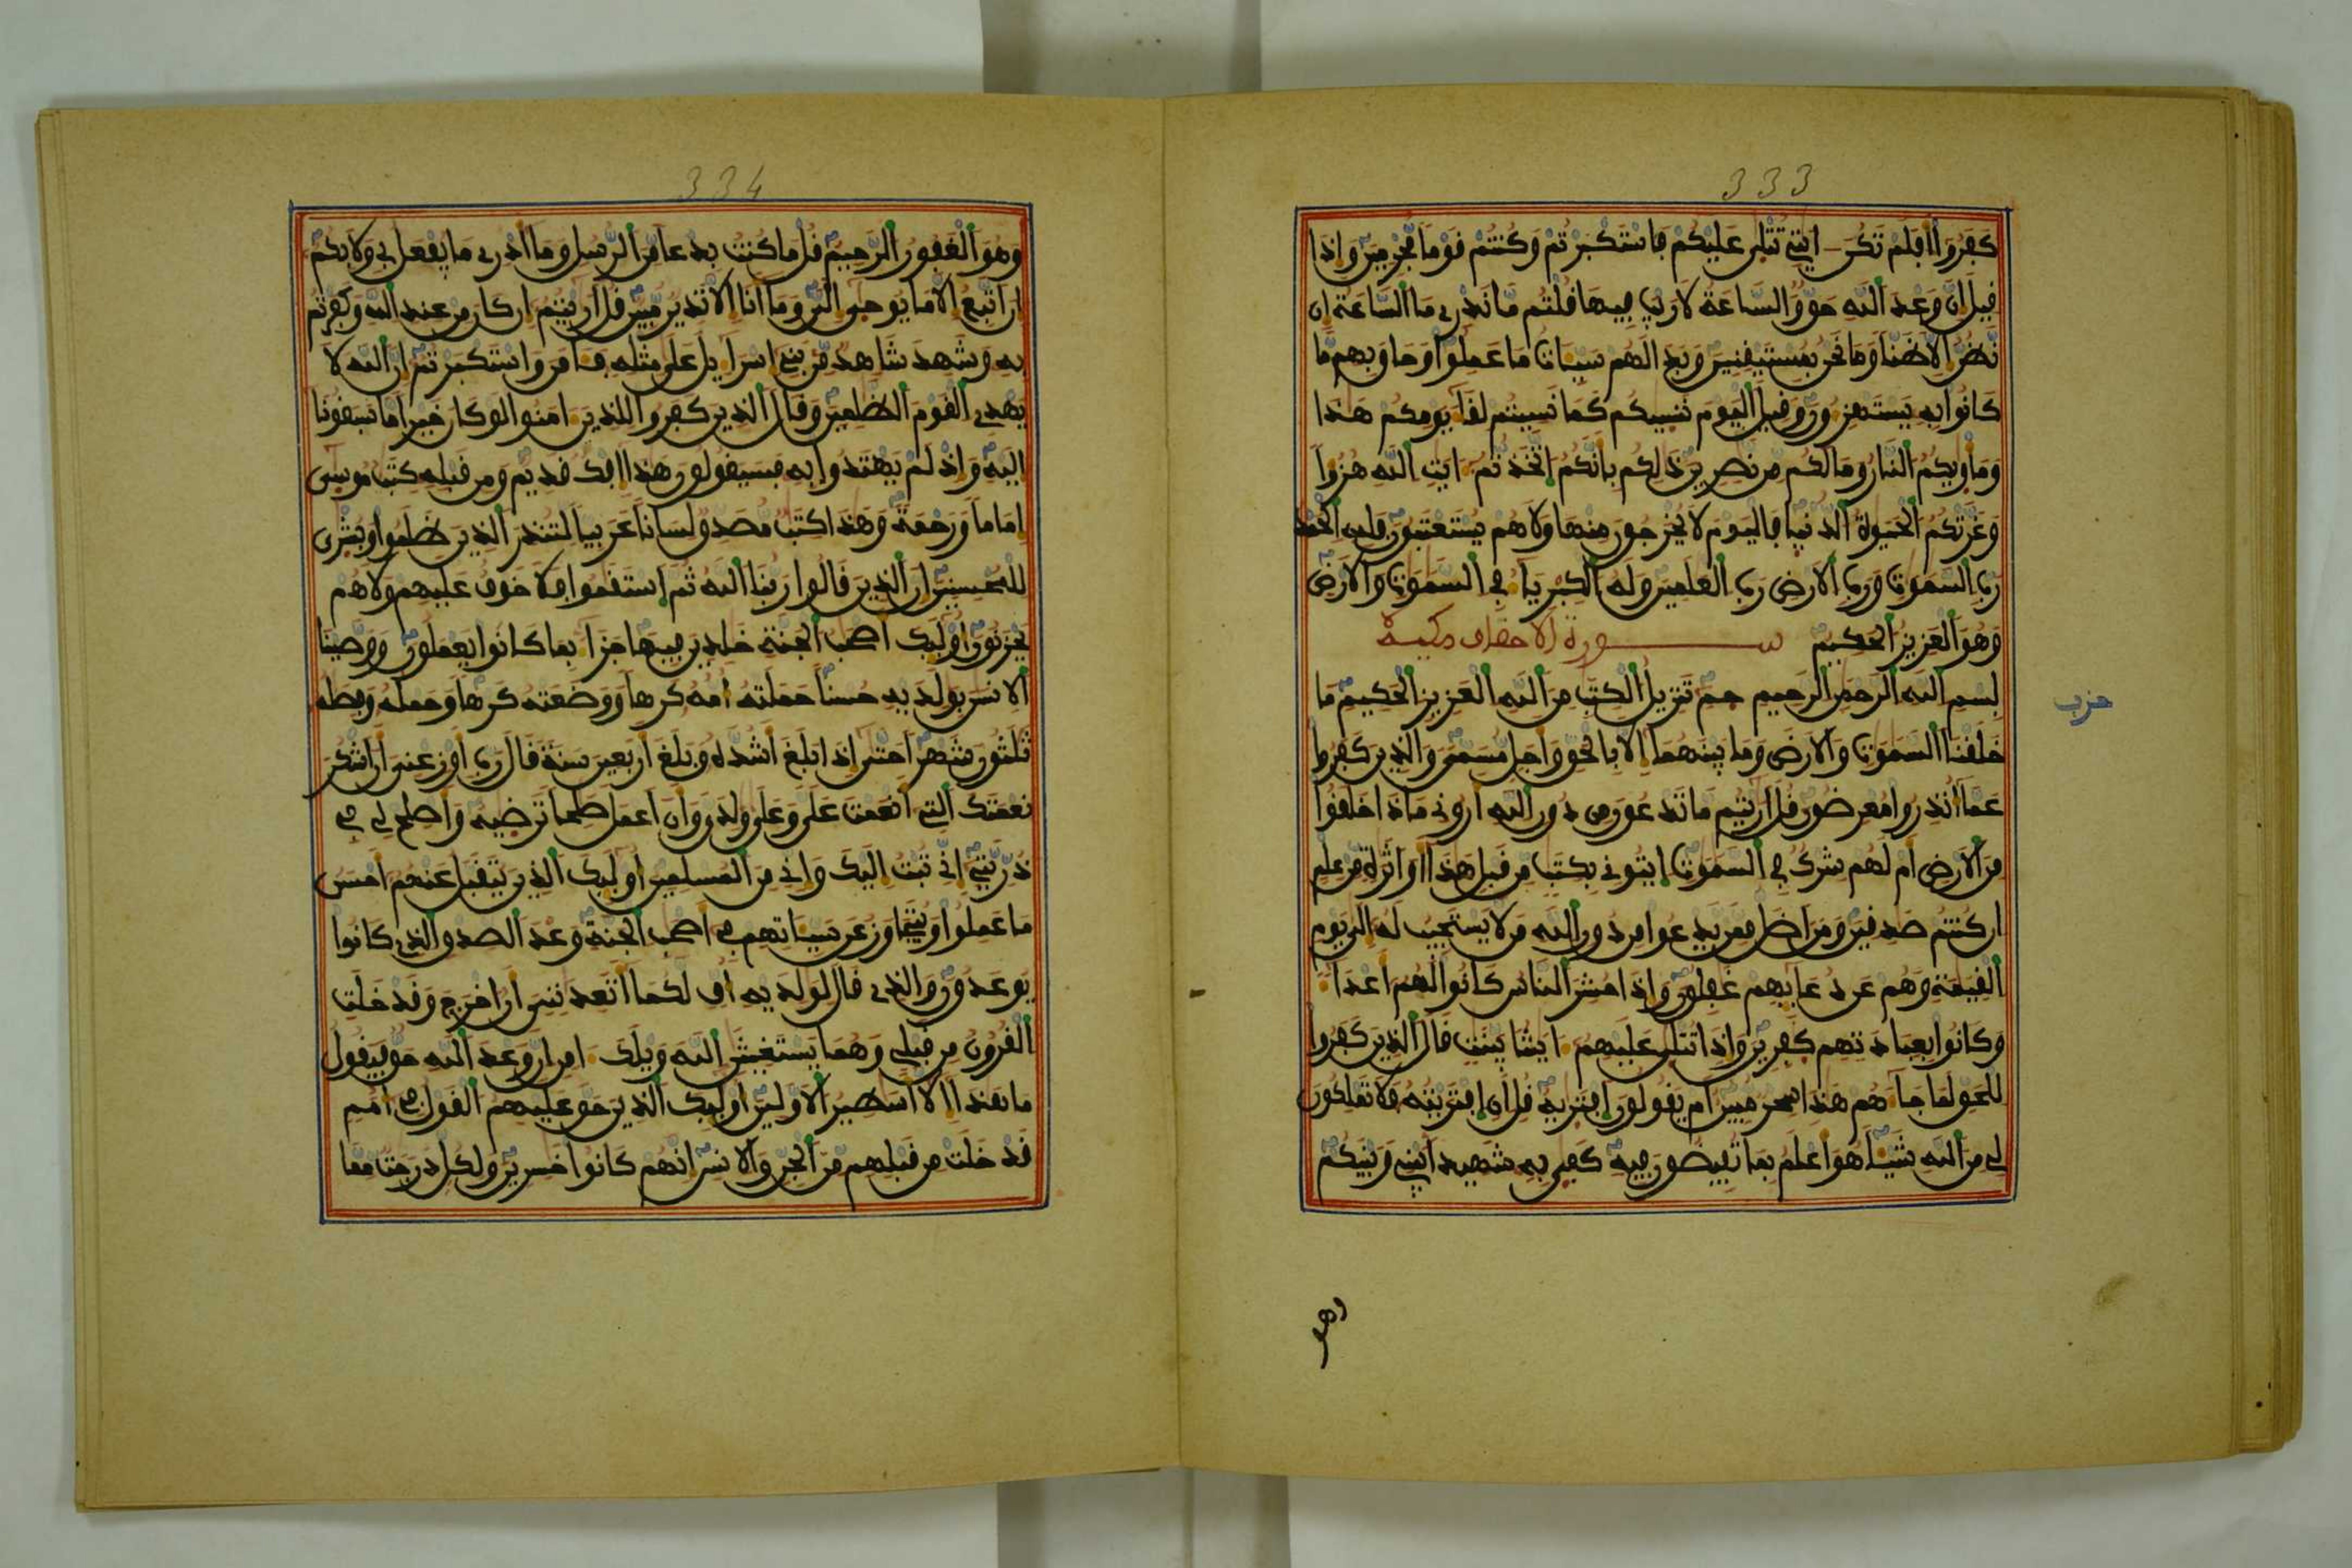 333
كفروا افلم تكن ايتي تتلى عليكم فاستكبرتم وكنتم قوما مجرمين واذا
قيل ان وعد الله حق والساعة لا ريب فيها قلتم ما ندري ما الساعة ان
نظن الا ظنا وما نحن بمستيقنين وبدا لهم سيات ما عملوا وحاق بهم ما
كانوا به يستهزون وقيل اليوم ننسيكم كما نسيتم لقا يومكم هذا
وماويكم النار وما لكم من نصرين ذلكم بانكم اتخذتم ايت الله هزوا
وغرتكم الحيوة الدنيا فاليوم لا يخرجون منها ولا هم يستعتبون فلله الحمد
رب السموت ورب الارض رب العلمين وله الكبريا في السموت والارض
وهو العزيز الحكيم سورة الاحقاف مكية
بسم الله الرحمن الرحيم حم تنزيل الكتب من الله العزيز الحكيم ما
حزب
خلقنا السموت والارض وما بينهما الا بالحق واجل مسمى والذين كفروا
عما انذروا معرضون قل اريتم ما تدعون من دون الله اروني ماذا خلقوا
من الارض ام لهم شرك في السموت ايتوني بكتب من قبل هذا او اثرة من علم
ان كنتم صدقين ومن اضل ممن يدعوا من دون الله من لا يستجيب له الى يوم
القيمة وهم عن دعايهم غفلون واذا حشر الناس كانوا لهم اعدا
وكانوا بعبادتهم كفرين واذا تتلى عليهم ايتنا بينت قال الذين كفروا
للحق لما جاهم هذا سحر مبين ام يقولون افتريه قل ان افتريته فلا تملكون
لي من الله شيا هو اعلم بما تفيضون فيه كفى به شهيدا بيني وبينكم
وهو
334
وهو الغفور الرحيم قل ما كنت بدعا من الرسل وما ادري ما يفعل بي ولا بكم
ان اتبع الا ما يوحى الي وما انا الا نذير مبين قل اريتم ان كان من عند الله وكفرتم
به وشهد شاهد من بني اسرايل على مثله فامن واستكبرتم ان الله لا
يهدي القوم الظلمين وقال الذين كفروا للذين امنوا لو كان خيرا ما سبقونا
اليه واذ لم يهتدوا به فسيقولون هذا افك قديم ومن قبله كتب موسى
اماما ورحمة وهذا كتب مصدق لسانا عربيا لتنذر الذين ظلموا وبشرى
للمحسنين ان الذين قالوا ربنا الله ثم استقموا فلا خوف عليهم ولا هم
يحزنون اوليك اصحب الجنة خلدين فيها جزا بما كانوا يعملون ووصينا
الانسن بولديه حسنا حملته امه كرها ووضعته كرها وحمله وفصله
ثلثون شهرا حتى اذا بلغ اشده وبلغ اربعين سنة قال رب اوزعني ان اشكر
نعمتك التي انعمت علي وعلى ولدي وان اعمل صلحا ترضيه واصلح لي في
ذريتي اني تبت اليك واني من المسلمين اوليك الذين يتقبل عنهم احسن
ما عملوا ويتجاوز عن سياتهم في اصحب الجنة وعد الصدق الذي كانوا
يوعدون والذي قال لولديه اف لكما اتعدنني ان اخرج وقد خلت
القرون من قبلي وهما يستغيثن الله ويلك امن ان وعد الله حق فيقول
ما هذا الا اسطير الاولين اوليك الذين حق عليهم القول في امم
قد خلت من قبلهم من الجن والانس انهم كانوا خسرين ولكل درجت مما